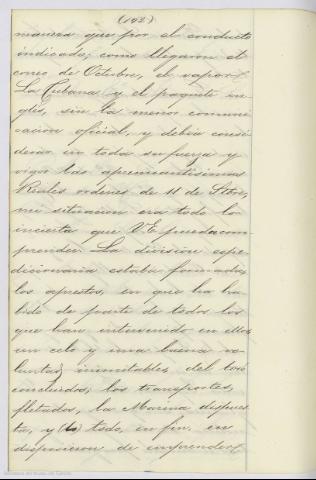 (103)
manera que por el conducto
indicado; como llegaron el
correo de Octubre, el vapor
La Cubana y el paquete in-
glés, sin la menor comuni-
cacion oficial, y debia consi-
derar en toda su fuerza y
vigor las apremiantisimas
Reales ordenes de 11 de Sbre,
mi situacion era todo lo
incierta que V.E. puede com-
prender. La division espe-
dicionaria estaba formada,
los aprestos, en que ha ha-
bido de parte de todos los
que han intervenido en ellos
un celo y una buena vo-
luntad inimitables, del todo
concluidos; los transportes,
fletados, la Marina dispues-
ta, y todo, en fin, en
disposicion de emprender